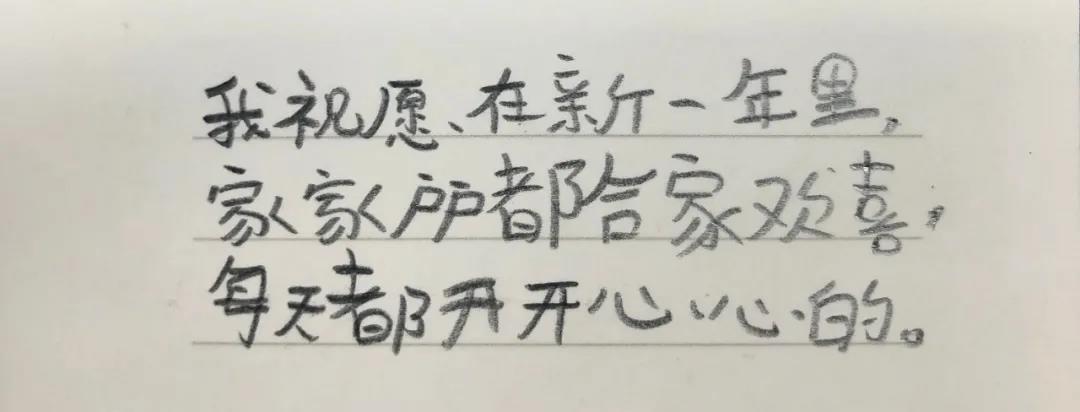 我祝愿、在新一年里,
家家户户都合家欢喜,
每天都开开心心的。